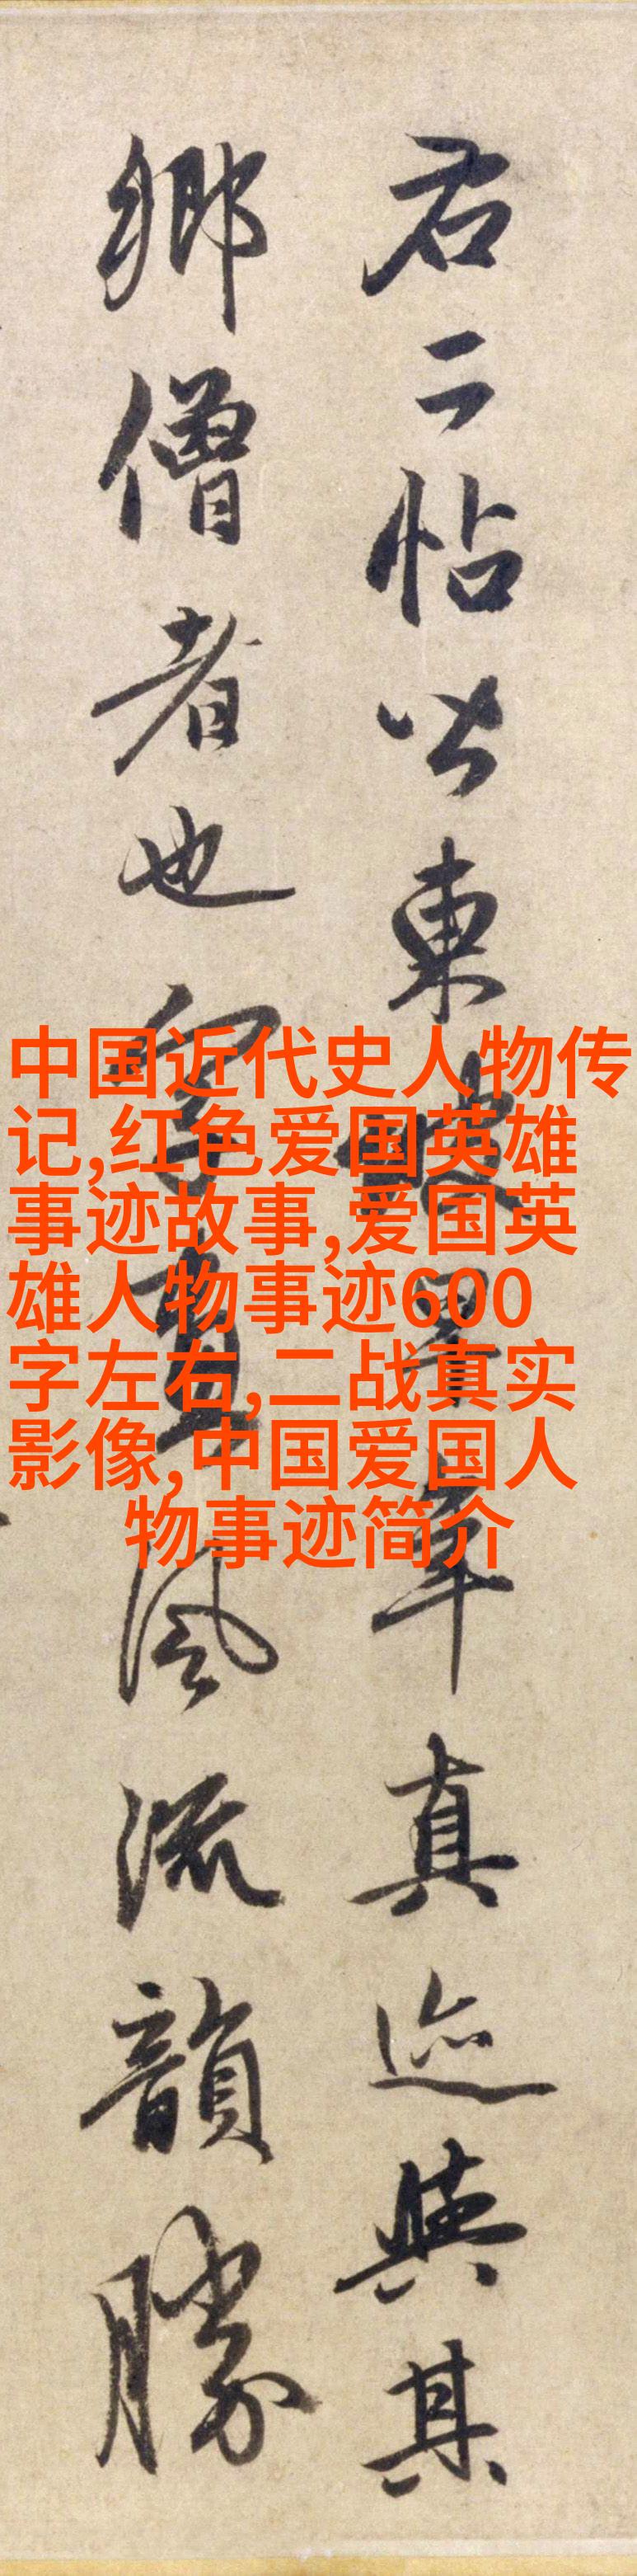 右二帖皆東坡早年真迹與其
鄉僧者也字畫風流韻勝
中国近代史人物传
记,红色爱国英雄
事迹故事,爱国英
雄人物事迹600
字左右,二战真实
影像,中国爱国人
物事迹简介